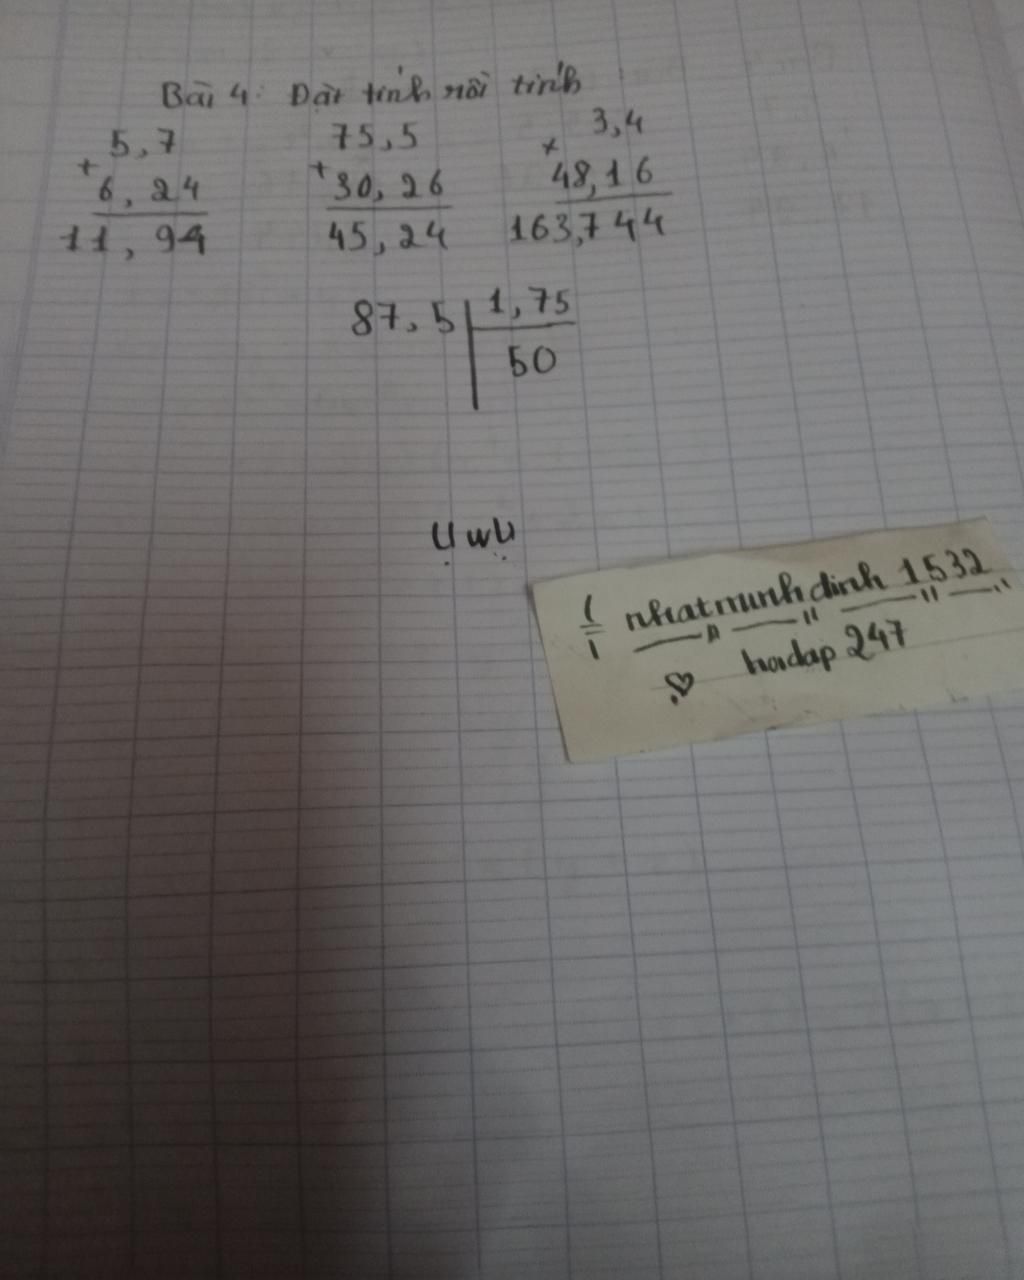 Bài 4: Đặt tính rồi tính
5,7
+
6,24
11,94
75,5
+
30,26
45,24
3,4
×
48,16
163,744
87,5 1,75
50
ỤwỤ
nhatminhdinh 1532
hoidap 247